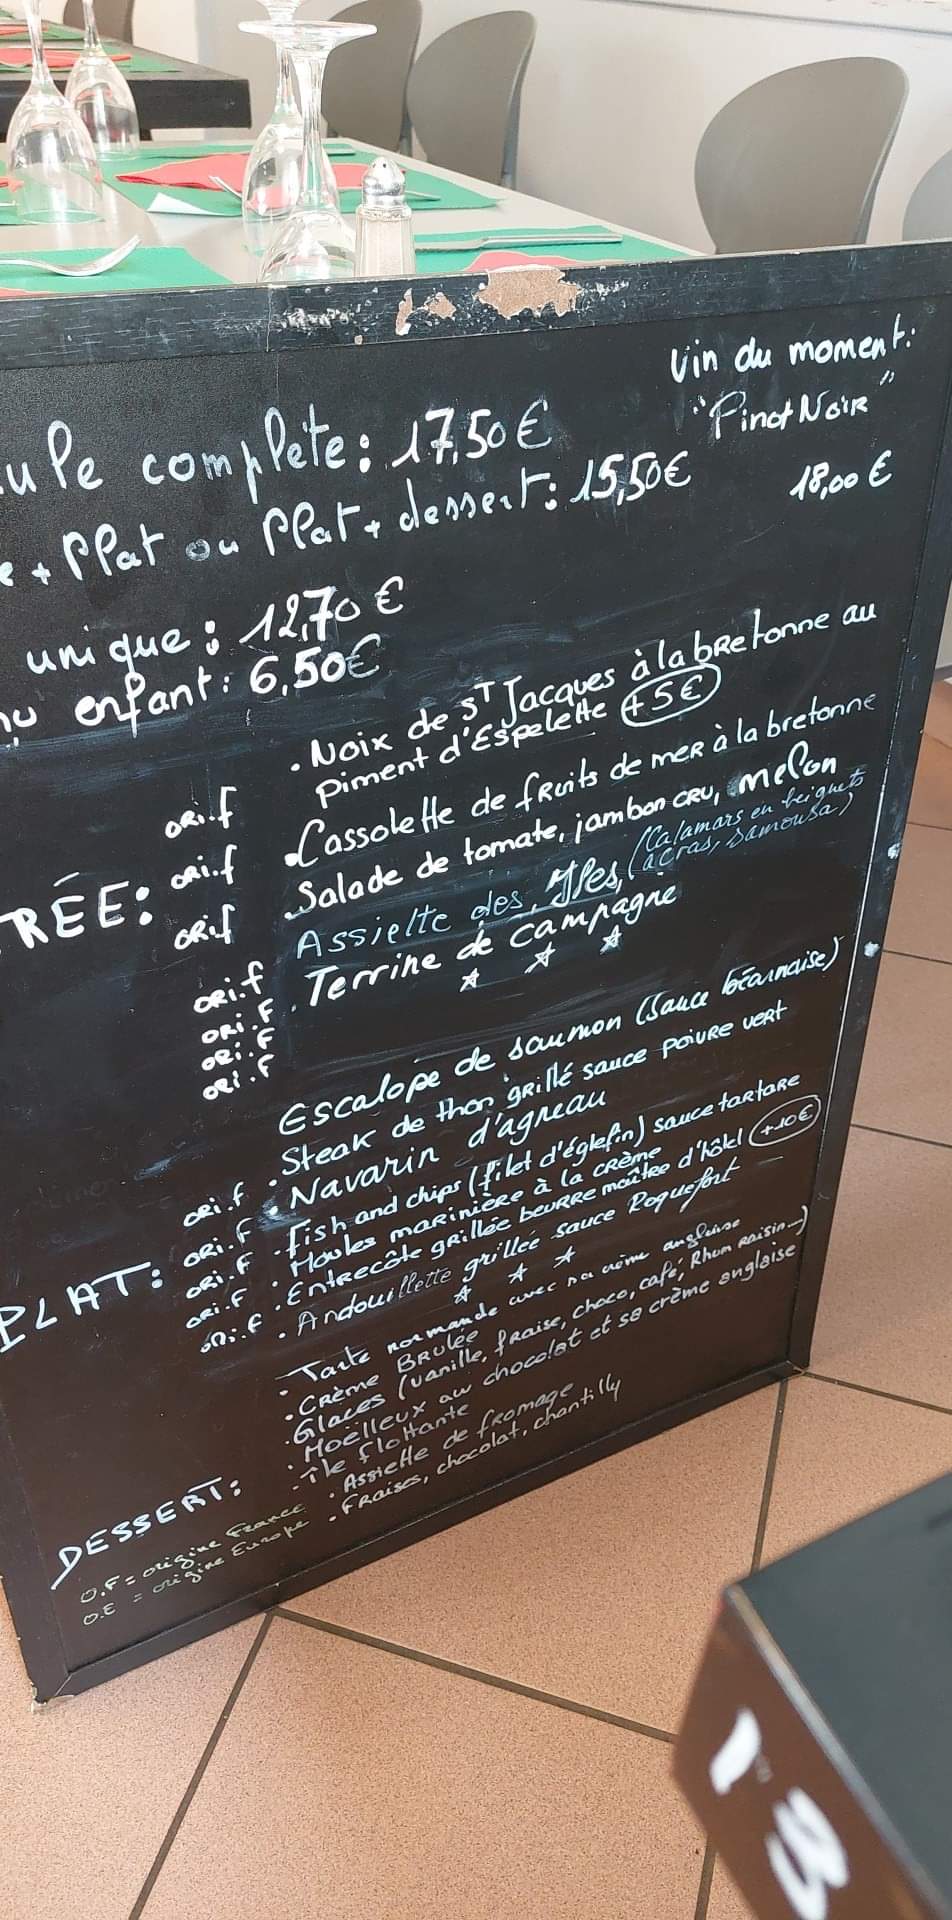 vin du moment:
"Pinot Noir"
ule complète: 17,50€
18,00 €
e + Plat ou Plat + dessert: 15,50€
unique: 12,70 €
nu enfant: 6,50€
. Noix de ST Jacques à la bretonne au
piment d'Espelette +5€
ORi.f
. Cassolette de fruits de mer à la bretonne
ORi.f
. Salade de tomate, jambon cru, melon
RÉE:
ORi.f
Assiette des Iles, (Calamars en beignets
acras, samousa)
ORi.f
. Terrine de campagne
ORi.F
ORi.F
ORi.F
Escalope de saumon (sauce béarnaise)
. Steak de thon grillé sauce poivre vert
ORi.f
. Navarin d'agneau
ORi.F
. Fish and chips (filet d'églefin) sauce tartare
ORi.F
. Moules marinière à la crème
PLAT:
ORi.F
. Entrecôte grillée beurre maître d'hôtel +10€
ORi.F
. Andouillette grillée sauce Roquefort
. Tarte normande avec sa crème anglaise
. Crème Brulée
. Glaces (vanille, fraise, choco, café, Rhum raisin...)
. Moëlleux au chocolat et sa crème anglaise
. île flottante
DESSERT:
. Assiette de fromage
. Fraises, chocolat, chantilly
O.F = origine France
O.E = origine Europe
13